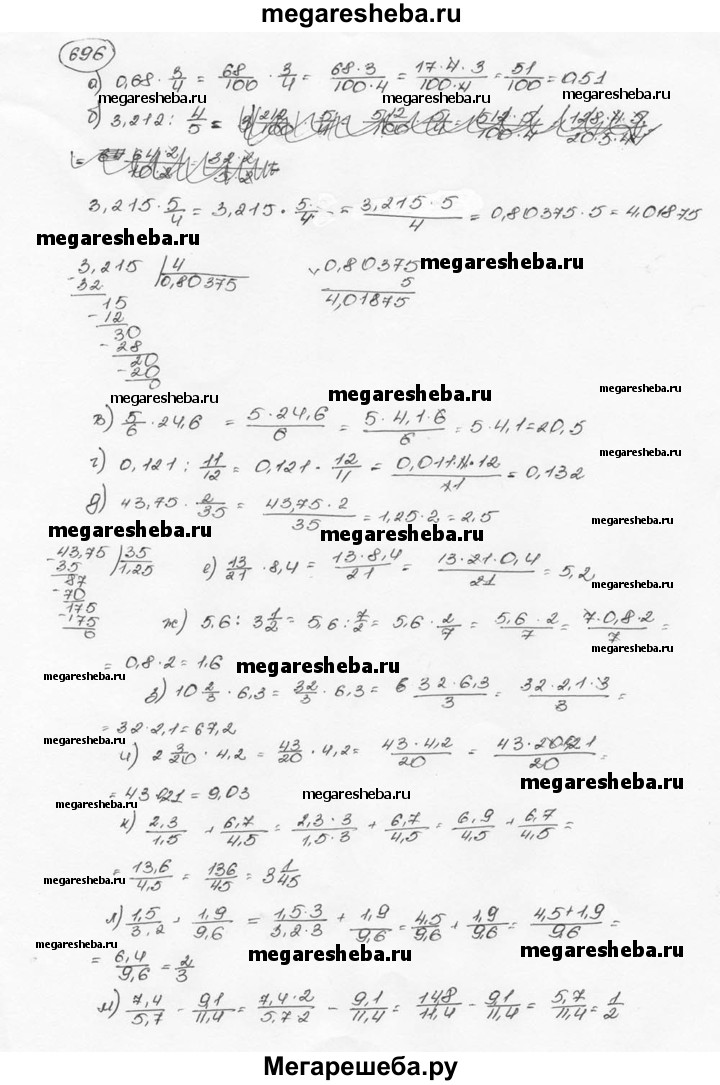 megaresheba.ru
696
а) 0,68 · 3/4 = 68/100 · 3/4 = 68·3/100·4 = 17·4·3/100·4 = 51/100 = 0,51
megaresheba.ru megaresheba.ru megaresheba.ru
б) 3,212 : 4/5 =
3,215 · 5/4 = 3,215 · 5/4 = 3,215·5/4 = 0,80375·5 = 4,01875
megaresheba.ru megaresheba.ru megaresheba.ru
3,215 | 4 0,80375
-32 0,80375 5
15 4,01875
-12
30
-28
20
-20
0
megaresheba.ru megaresheba.ru megaresheba.ru
в) 5/6 · 24,6 = 5·24,6/6 = 5·4,1·6/6 = 5·4,1 = 20,5
megaresheba.ru
г) 0,121 : 11/12 = 0,121 · 12/11 = 0,011·11·12/11 = 0,132
д) 43,75 · 2/35 = 43,75·2/35 = 1,25·2 = 2,5
megaresheba.ru megaresheba.ru megaresheba.ru
43,75 | 35
-35 1,25
87
-70
175
-175
0
е) 13/21 · 8,4 = 13·8,4/21 = 13·21·0,4/21 = 5,2
megaresheba.ru
ж) 5,6 : 3 1/2 = 5,6 : 7/2 = 5,6 · 2/7 = 5,6·2/7 = 7·0,8·2/7 =
= 0,8·2 = 1,6
megaresheba.ru megaresheba.ru megaresheba.ru
з) 10 2/3 · 6,3 = 32/3 · 6,3 = 32·6,3/3 = 32·2,1·3/3 =
= 32·2,1 = 67,2
megaresheba.ru megaresheba.ru
и) 2 3/20 · 4,2 = 43/20 · 4,2 = 43·4,2/20 = 43·20·0,21/20 =
megaresheba.ru
= 43·0,21 = 9,03
megaresheba.ru megaresheba.ru
к) 2,3/1,5 + 6,7/4,5 = 2,3·3/1,5·3 + 6,7/4,5 = 6,9/4,5 + 6,7/4,5 =
= 13,6/4,5 = 136/45 = 3 1/45
megaresheba.ru megaresheba.ru megaresheba.ru
л) 1,5/3,2 + 1,9/9,6 = 1,5·3/3,2·3 + 1,9/9,6 = 4,5/9,6 + 1,9/9,6 = 4,5+1,9/9,6 =
megaresheba.ru megaresheba.ru megaresheba.ru
= 6,4/9,6 = 2/3
м) 7,4/5,7 - 9,1/11,4 = 7,4·2/5,7·2 - 9,1/11,4 = 148/11,4 - 9,1/11,4 = 5,7/11,4 = 1/2
Мегарешеба.ру